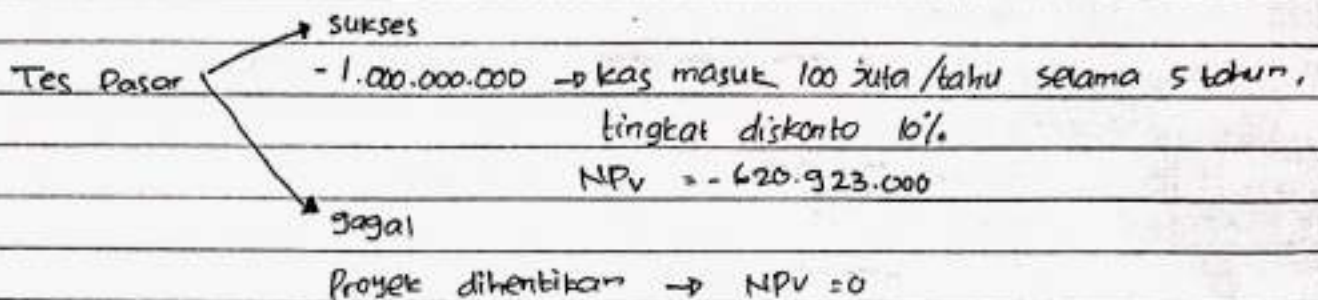 sukses
Tes Pasar - 1.000.000.000 → kas masuk 100 juta /tahu selama 5 tahun.
tingkat diskonto 10%.
NPV = - 620.923.000
gagal
Proyek dihentikan → NPV = 0